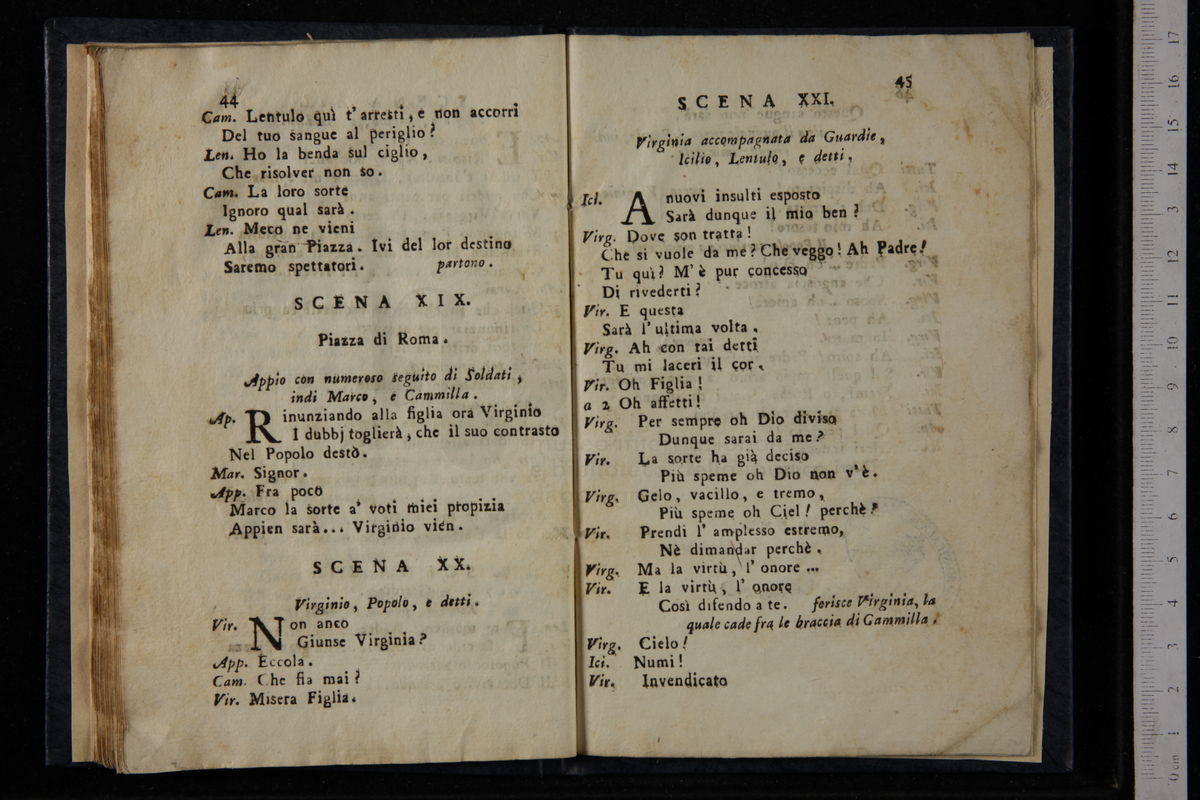 44
Cam. Lentulo quì t' arresti, e non accorri
Del tuo sangue al periglio?
Len. Ho la benda sul ciglio,
Che risolver non so.
Cam. La loro sorte
Ignoro qual sarà.
Len. Meco ne vieni
Alla gran Piazza. Ivi del lor destino
Saremo spettatori. partono.
SCENA XIX.
Piazza di Roma.
Appio con numeroso seguito di Soldati,
indi Marco, e Cammilla.
Ap. Rinunziando alla figlia ora Virginio
I dubbj toglierà, che il suo contrasto
Nel Popolo destò.
Mar. Signor.
App. Fra poco
Marco la sorte a' voti miei propizia
Appien sarà... Virginio vien.
SCENA XX.
Virginio, Popolo, e detti.
Vir. Non anco
Giunse Virginia?
App. Eccola.
Cam. Che fia mai?
Vir. Misera Figlia.
45
SCENA XXI.
Virginia accompagnata da Guardie,
Icilio, Lentulo, e detti.
Icl. A nuovi insulti esposto
Sarà dunque il mio ben?
Virg. Dove son tratta!
Che si vuole da me? Che veggo! Ah Padre!
Tu quì? M' è pur concesso
Di rivederti?
Vir. E questa
Sarà l' ultima volta.
Virg. Ah con tai detti
Tu mi laceri il cor.
Vir. Oh Figlia!
a 2 Oh affetti!
Virg. Per sempre oh Dio diviso
Dunque sarai da me?
Vir. La sorte ha già deciso
Più speme oh Dio non v' è.
Virg. Gelo, vacillo, e tremo,
Più speme oh Ciel! perchè?
Vir. Prendi l' amplesso estremo,
Nè dimandar perchè.
Virg. Ma la virtù, l' onore ...
Vir. E la virtù, l' onore
Così difendo a te. ferisce Virginia, la
quale cade fra le braccia di Cammilla.
Virg. Cielo!
Ici. Numi!
Vir. Invendicato
0 cm 1 2 3 4 5 6 7 8 9 10 11 12 13 14 15 16 17